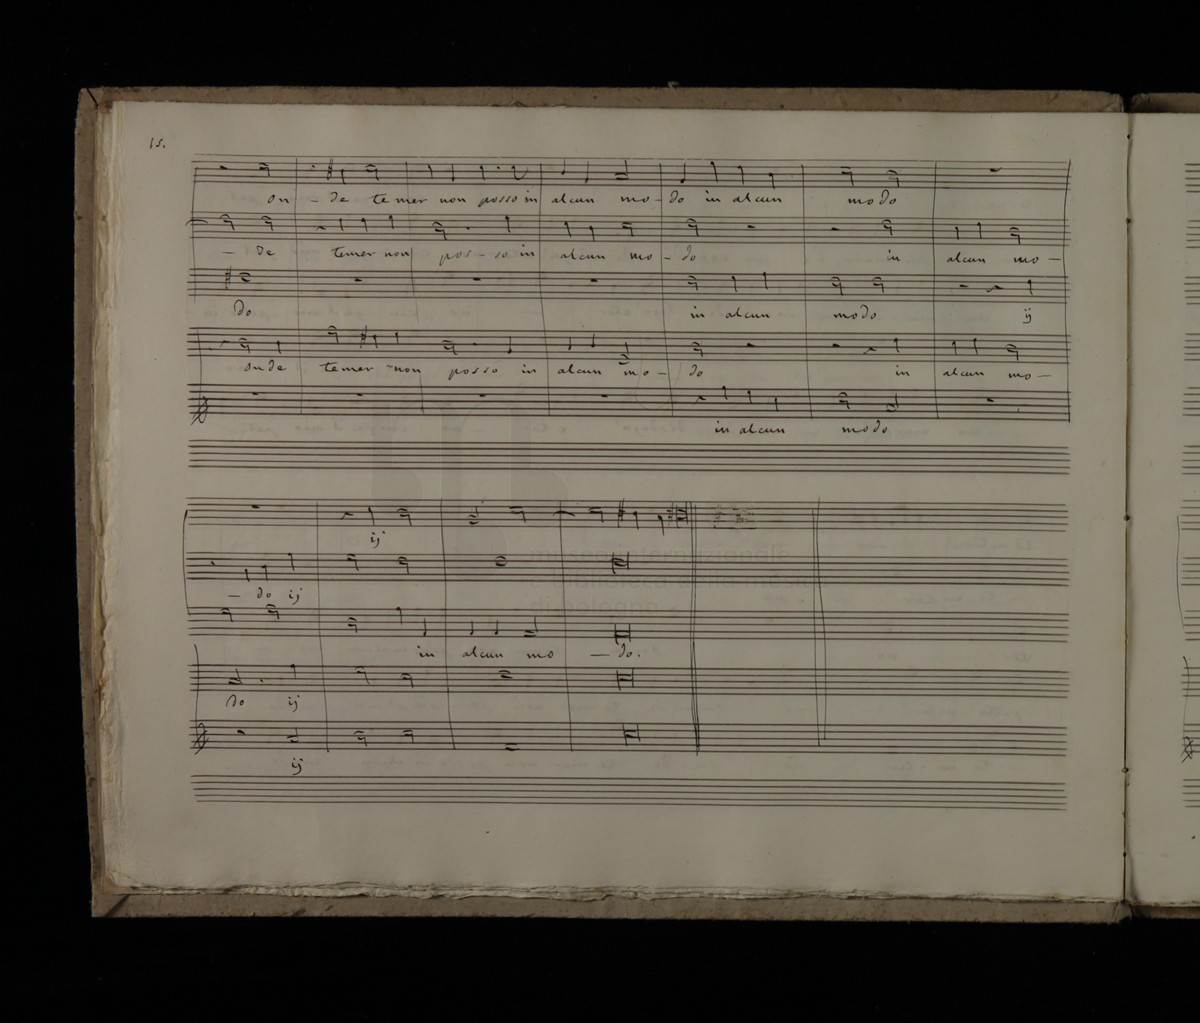 15.
on - de temer non posso in alcun mo - do in alcun modo
- de temer non pos - so in alcun mo - do in alcun mo -
do in alcun modo ij
onde temer non posso in alcun mo - do in alcun mo -
in alcun modo
ij
museo internazionale
e biblioteca della musica
di bologna
- do ij
in alcun mo - do.
do ij
ij